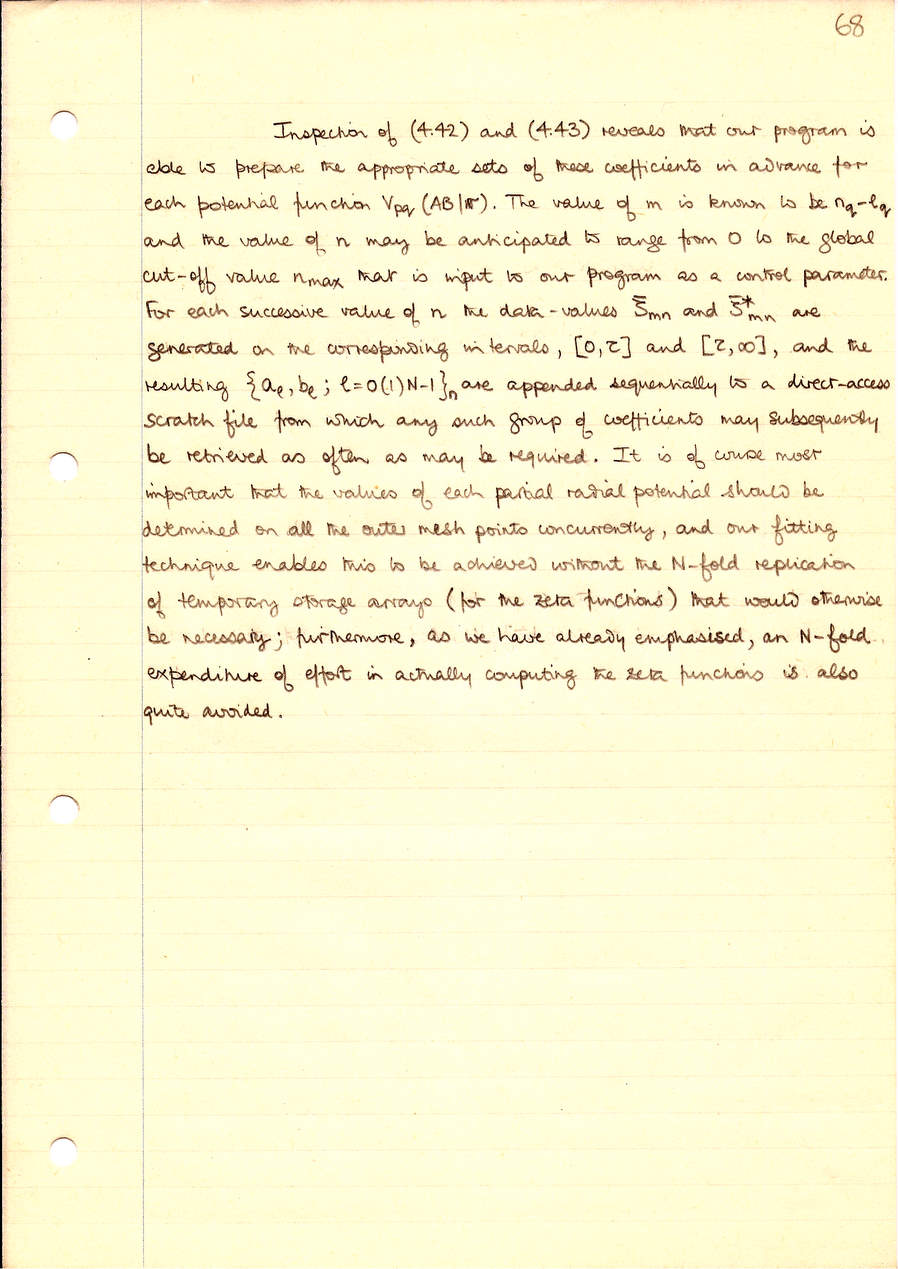 68
Inspection of (4.42) and (4.43) reveals that our program is
able to prepare the appropriate sets of these coefficients in advance for
each potential function Vpq (AB|r). The value of m is known to be nq-lq
and the value of n may be anticipated to range from 0 to the global
cut-off value nmax that is input to our program as a control parameter.
For each successive value of n the data-values ζ̄mn and ζ̄*mn are
generated on the corresponding intervals, [0,τ] and [τ,∞], and the
resulting {aℓ, bℓ ; ℓ=0(1)N-1}n are appended sequentially to a direct-access
scratch file from which any such group of coefficients may subsequently
be retrieved as often as may be required. It is of course most
important that the values of each partial radial potential should be
determined on all the outer mesh points concurrently, and our fitting
technique enables this to be achieved without the N-fold replication
of temporary storage arrays (for the zeta functions) that would otherwise
be necessary; furthermore, as we have already emphasised, an N-fold
expenditure of effort in actually computing the zeta functions is also
quite avoided.